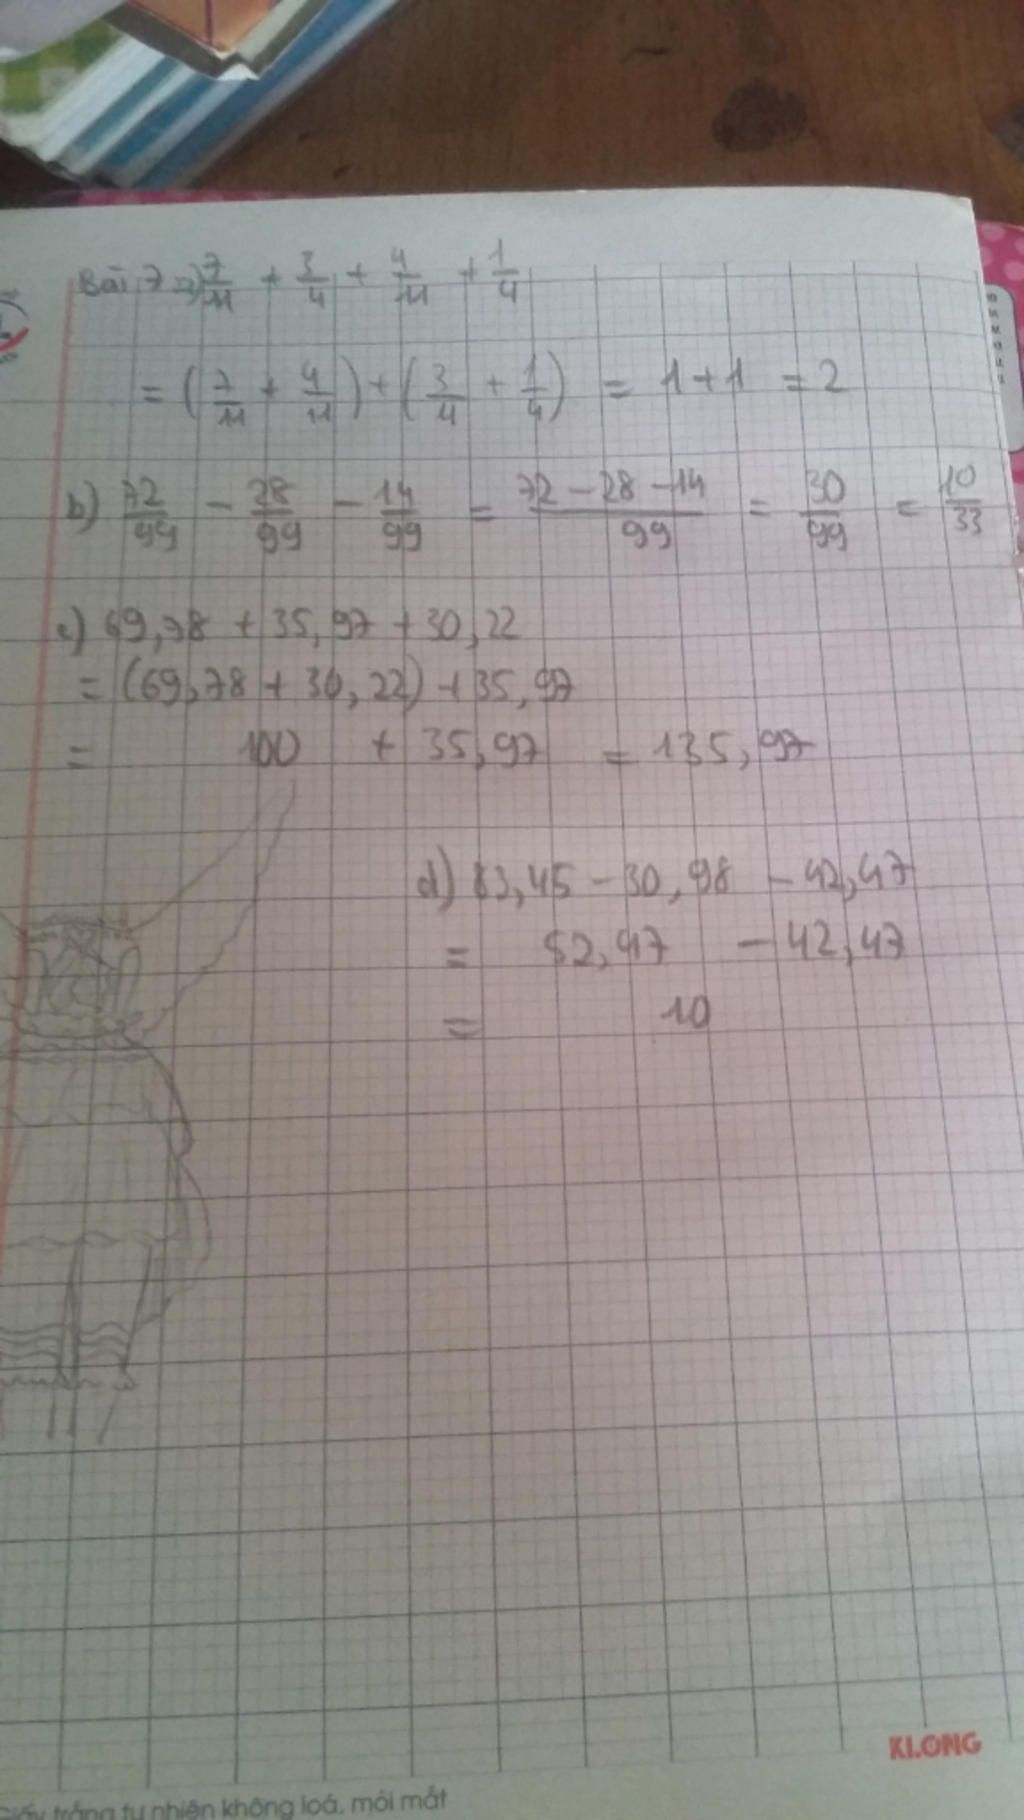 Bài 7 a) 7/11 + 3/4 + 4/11 + 1/4
= (7/11 + 4/11) + (3/4 + 1/4) = 1 + 1 = 2
b) 72/99 - 28/99 - 14/99 = 72 - 28 - 14/99 = 30/99 = 10/33
c) 69,78 + 35,97 + 30,22
= (69,78 + 30,22) + 35,97
= 100 + 35,97 = 135,97
d) 83,45 - 30,98 - 42,47
= 52,47 - 42,47
= 10
KLONG
Giấy trắng tự nhiên không loá, mỏi mắt